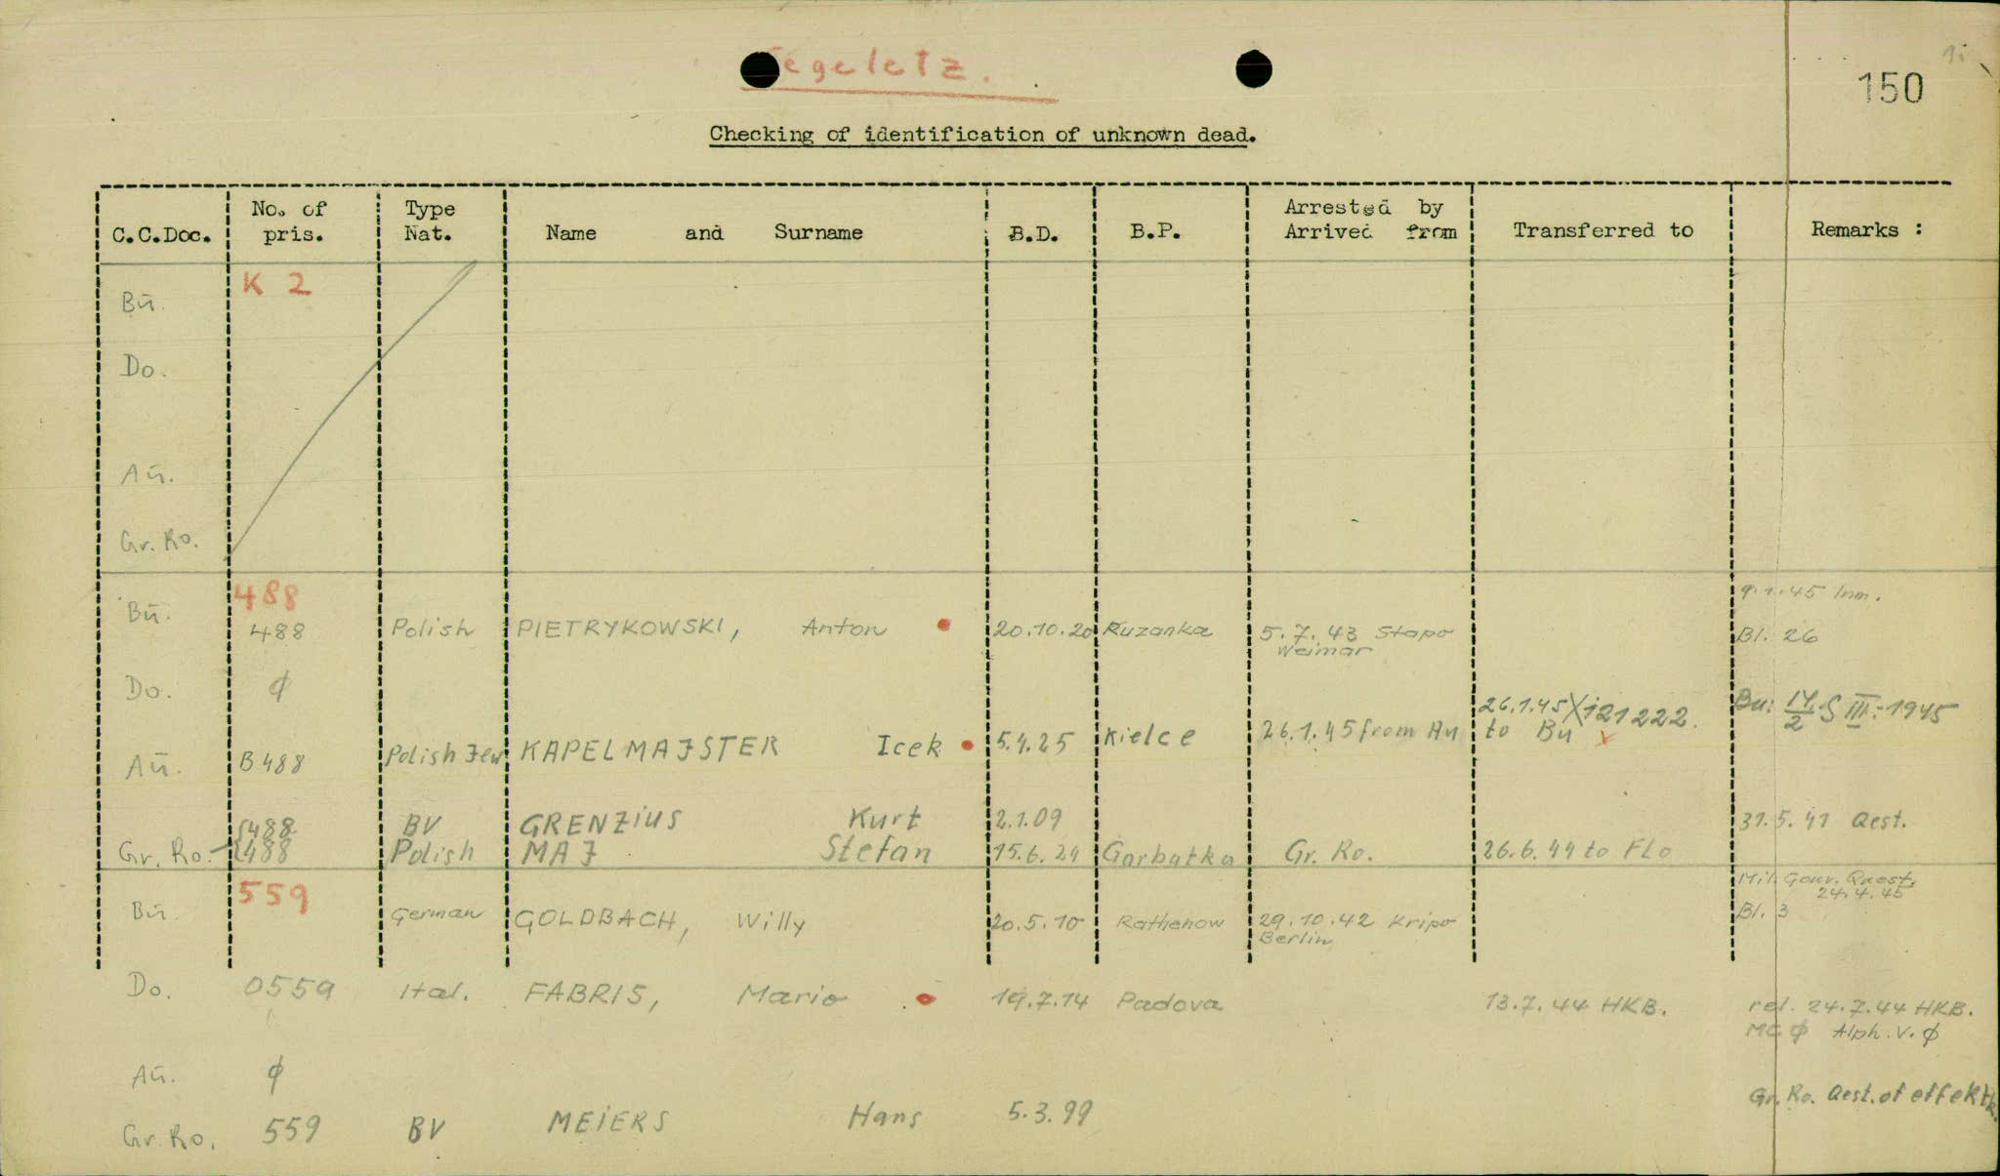 egeletz.
150
Checking of identification of unknown dead.
C.C.Doc. No. of pris. Type Nat. Name and Surname B.D. B.P. Arrested by Arrived from Transferred to Remarks :
K 2
Bū.
Do.
Aū.
Gr. Ro.
488
9.1.45 Inm.
Bū. 488 Polish PIETRYKOWSKI, Anton 20.10.20 Ruzanka 5.7.43 Stapo Weimar Bl. 26
Do. ϕ
Aū. B488 Polish Jew KAPELMAJSTER Icek 5.4.25 Kielce 26.1.45 from Au 26.1.45 to Bu 121222. Bu: 14/2 S III - 1945
488 BV GRENZIUS Kurt 2.1.09 31.5.41 Qest.
Gr. Ro. 488 Polish MAJ Stefan 15.6.24 Garbatka Gr. Ro. 26.6.44 to FLo
559
Mil. Gouv. Quest. 24.4.45
Bū. German GOLDBACH, Willy 20.5.10 Rathenow 29.10.42 Kripo Berlin Bl. 3
Do. 0559 Ital. FABRIS, Mario 19.7.14 Padova 13.7.44 HKB. rel. 24.7.44 HKB.
MC ϕ Alph. V. ϕ
Aū. ϕ
Gr. Ro. Qest. of effekt
Gr. Ro. 559 BV MEIERS Hans 5.3.99